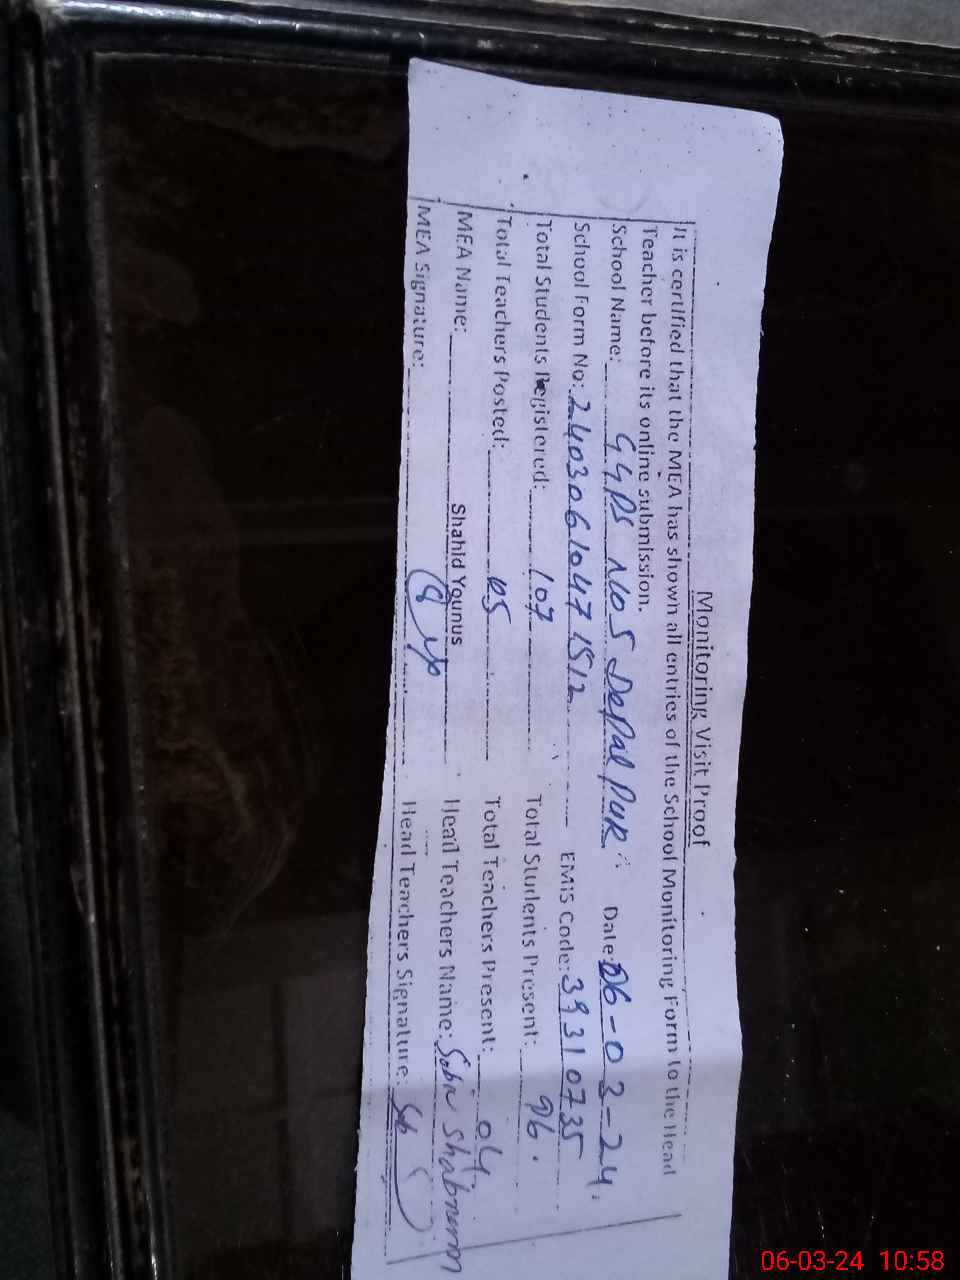 Monitoring Visit Proof
It is certified that the MEA has shown all entries of the School Monitoring Form to the Head
Teacher before its online submission.
School Name: GGPS No 5 Depal PUR Date: 06-03-24.
School Form No: 2403061047 1512 EMIS Code: 39310735
Total Students Registered: 107 Total Students Present: 96.
Total Teachers Posted: 05 Total Teachers Present: 04
MEA Name: Shahid Younus Head Teachers Name: Saba Shabnum
MEA Signature: Head Teachers Signature:
06-03-24 10:58